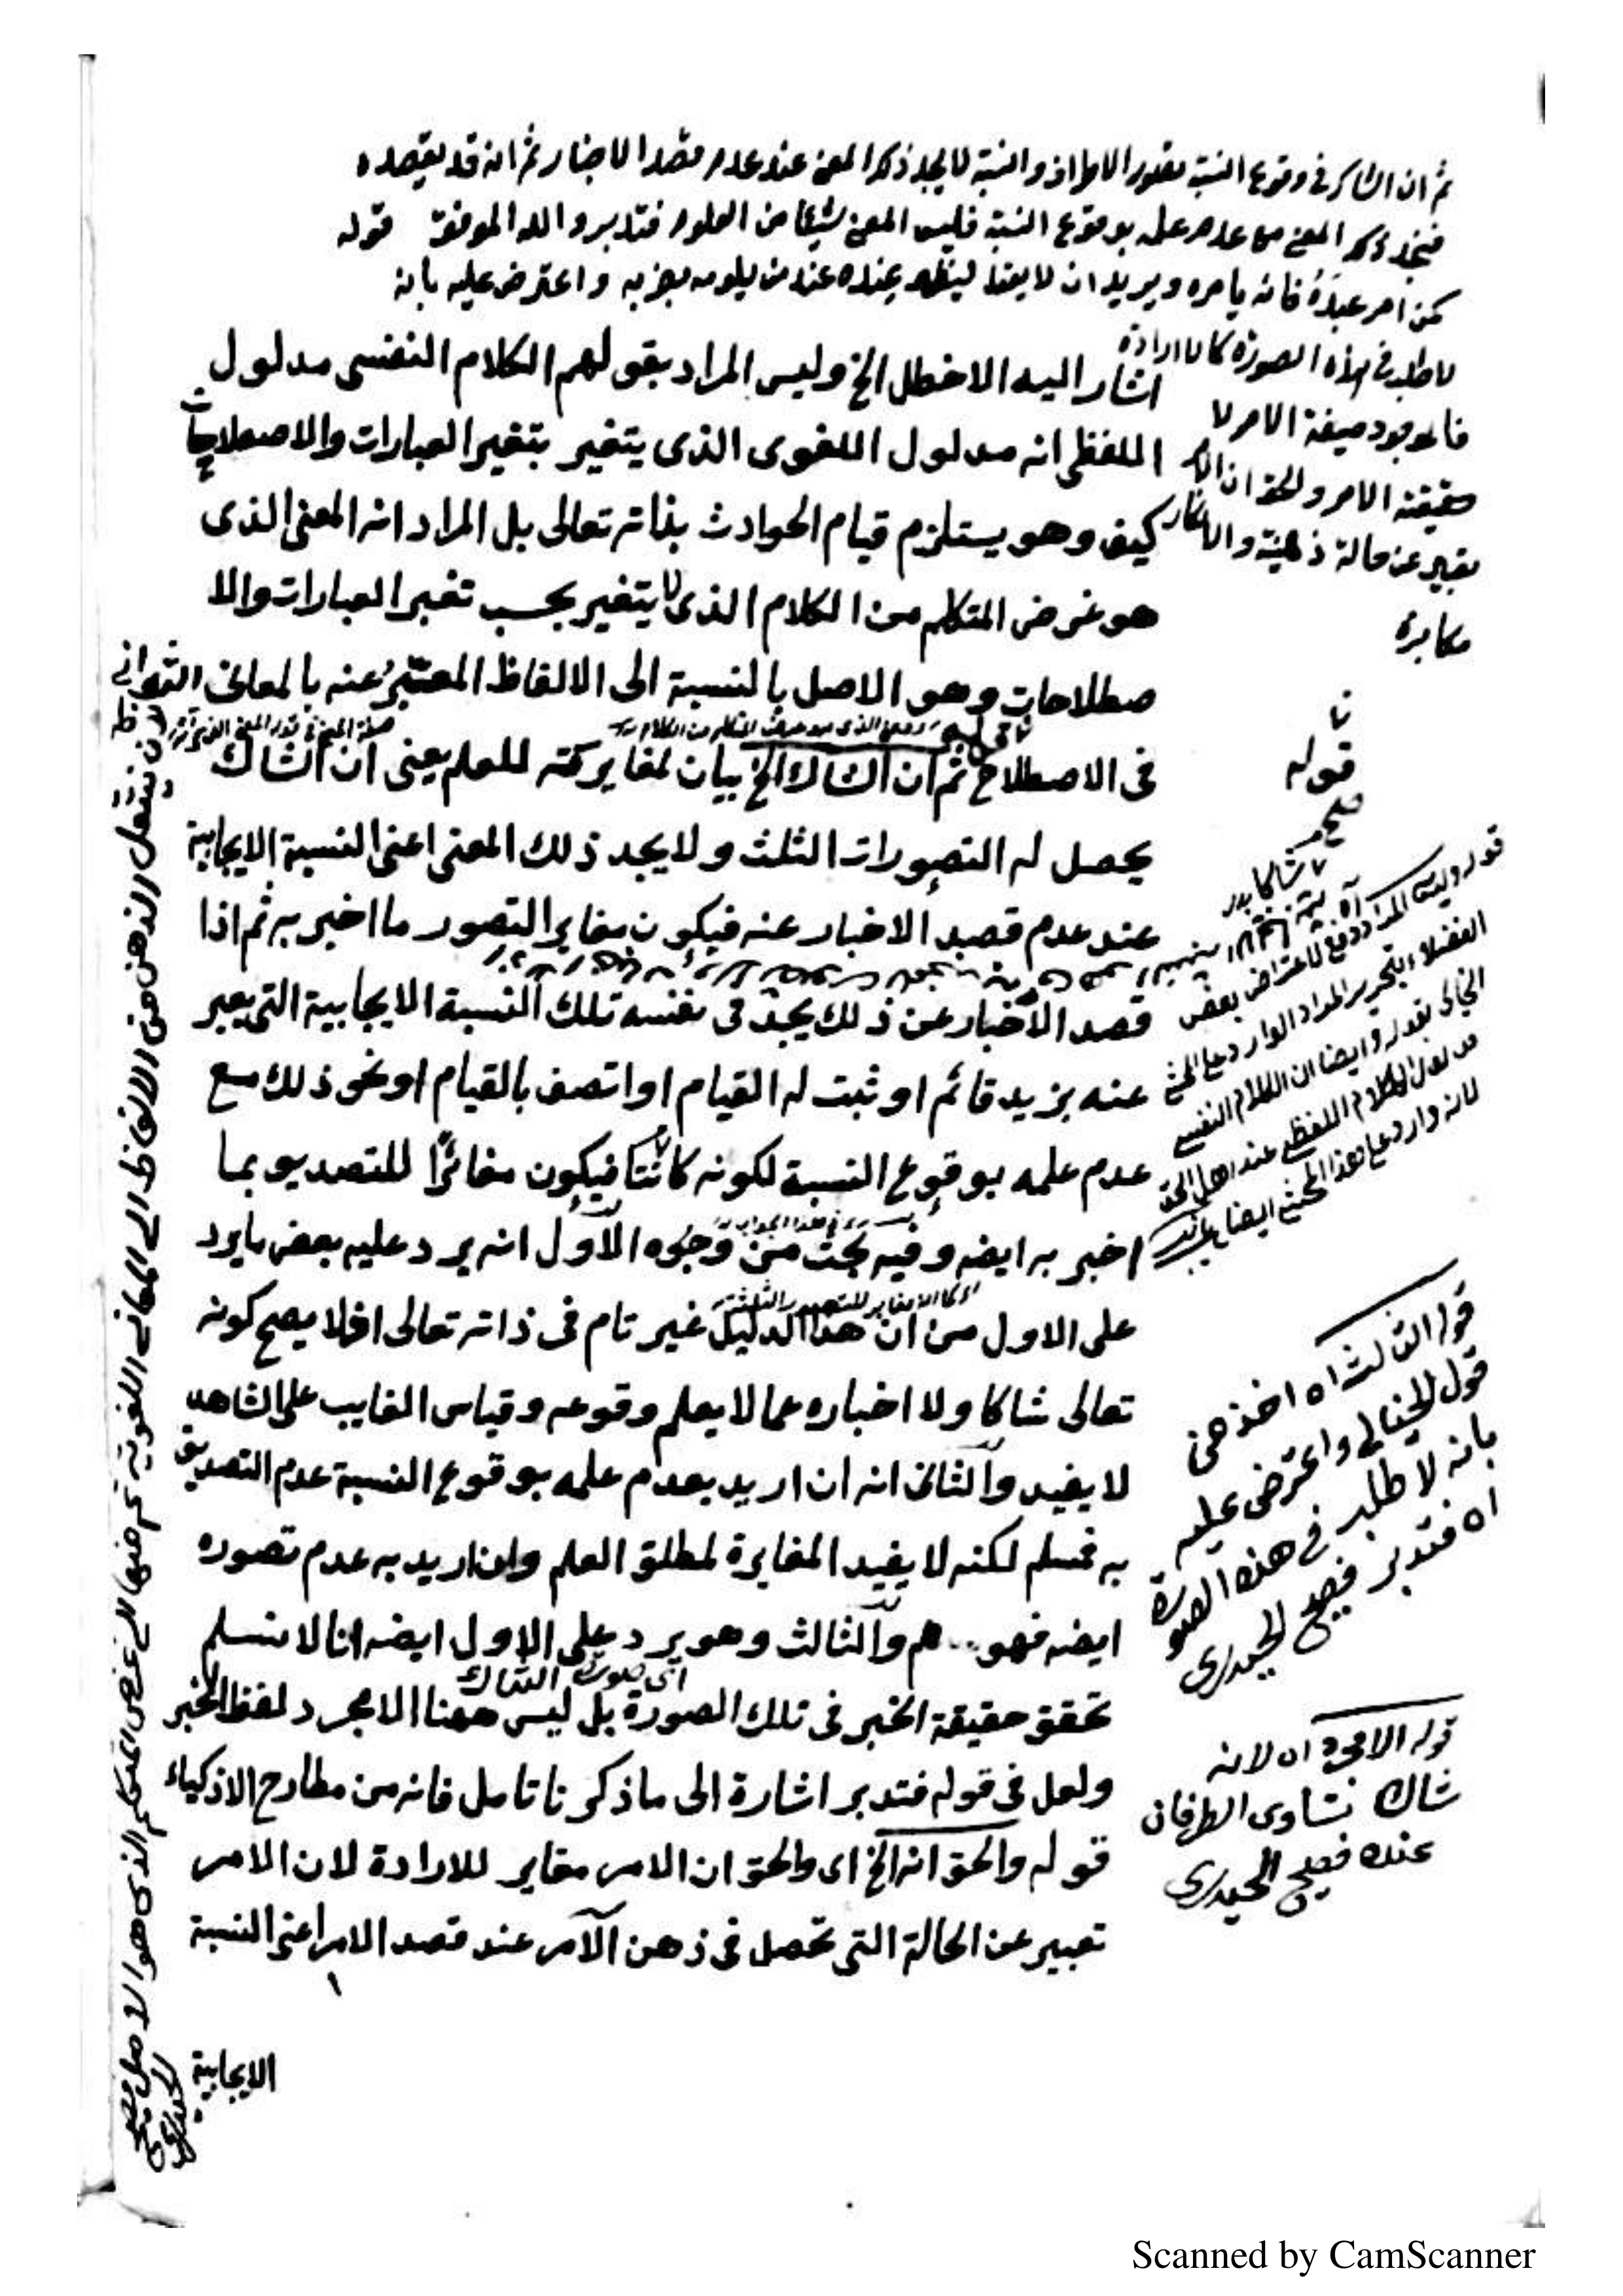 ثم ان الشاك في وقوع النسبة يتصور الاطراف والنسبة لا يجد ذلك المعنى عند عدم قصد الاخبار ثم انه قد يقصده
فيجد ذلك المعنى مع عدم علمه بوقوع النسبة فليس المعنى شيئا من العلوم فتدبر والله الموفق قوله
كمن امر عبده فانه يامره ويريد ان لا يفعل ليظهر عذره عند من يلومه بضربه واعترض عليه بانه
لا طلب في هذه الصورة كما لا ارادة
فالموجود صيغة الامر لا
حقيقته الامر والحق ان الامر
تعبير عن حالة ذهنية والانكار
مكابرة
اشار اليه الاخطل الخ وليس المراد بقولهم الكلام النفسى مدلول
اللفظى انه مدلول اللغوى الذى يتغير بتغير العبارات والاصطلاحات
كيف وهو يستلزم قيام الحوادث بذاته تعالى بل المراد انه المعنى الذى
هو غرض المتكلم من الكلام الذى لا يتغير بحسب تغير العبارات والا
صطلاحات وهو الاصل بالنسبة الى الالفاظ المعبّر عنه بالمعانى الثوانى
فى الاصطلاح ثم ان الشاك الخ بيان لمغايرته للعلم يعنى ان الشاك
يحصل له التصورات الثلث ولا يجد ذلك المعنى اعنى النسبة الايجابية
عند عدم قصد الاخبار عنه فيكون مغاير التصور ما اخبر به ثم اذا
قصد الاخبار عن ذلك يجد فى نفسه تلك النسبة الايجابية التى يعبر
عنه بزيد قائم او ثبت له القيام او اتصف بالقيام او نحو ذلك مع
عدم علمه بوقوع النسبة لكونه شاكا فيكون مغائرًا للتصديق بما
اخبر به ايضه وفيه بحث من وجوه الاول انه يرد عليه بعض ما يرد
على الاول من ان هذا الدليل غير تام فى ذاته تعالى اذ لا يصح كونه
تعالى شاكا ولا اخباره عما لا يعلم وقوعه وقياس الغايب على الشاهد
لا يفيد والثانى انه ان اريد بعدم علمه بوقوع النسبة عدم التصديق
به فمسلم لكنه لا يفيد المغايرة لمطلق العلم وان اريد به عدم تصوره
ايضه فهو مم والثالث وهو يرد على الاول ايضه انا لا نسلم
اى صورة الشاك
تحقق حقيقة الخبر فى تلك الصورة بل ليس ههنا الا مجرد لفظ الخبر
ولعل فى قوله فتدبر اشارة الى ما ذكرنا تامل فانه من مطارح الاذكياء
قوله والحق انه الخ اى والحق ان الامر مغاير للارادة لان الامر
تعبير عن الحالة التى تحصل فى ذهن الآمر عند قصد الامر اعنى النسبة
الايجابية
قوله
صح
قوله وليس المراد دفع لاعتراض بعض
الفضلاء بتحرير المراد الوارد على المحشى
الخيالى بقوله وايضا ان الكلام النفسى
مدلول الكلام اللفظى عند اهل الحق
لانه وارد على هذا المحشى ايضا
قوله الثالث اه اخذ من
قول الخيالى واعترض عليه
بانه لا طلب فى هذه الصورة
اه فتدبر فصيح الحيدرى
قوله الا مجرد اه لانه
شاك تساوى الطرفان
عنده فصيح الحيدرى
ينتقل الذهن من الالفاظ الى المعانى اللغوية ثم منها الى غرض المتكلم الذى هو الاصل فصيح الحيدرى
Scanned by CamScanner